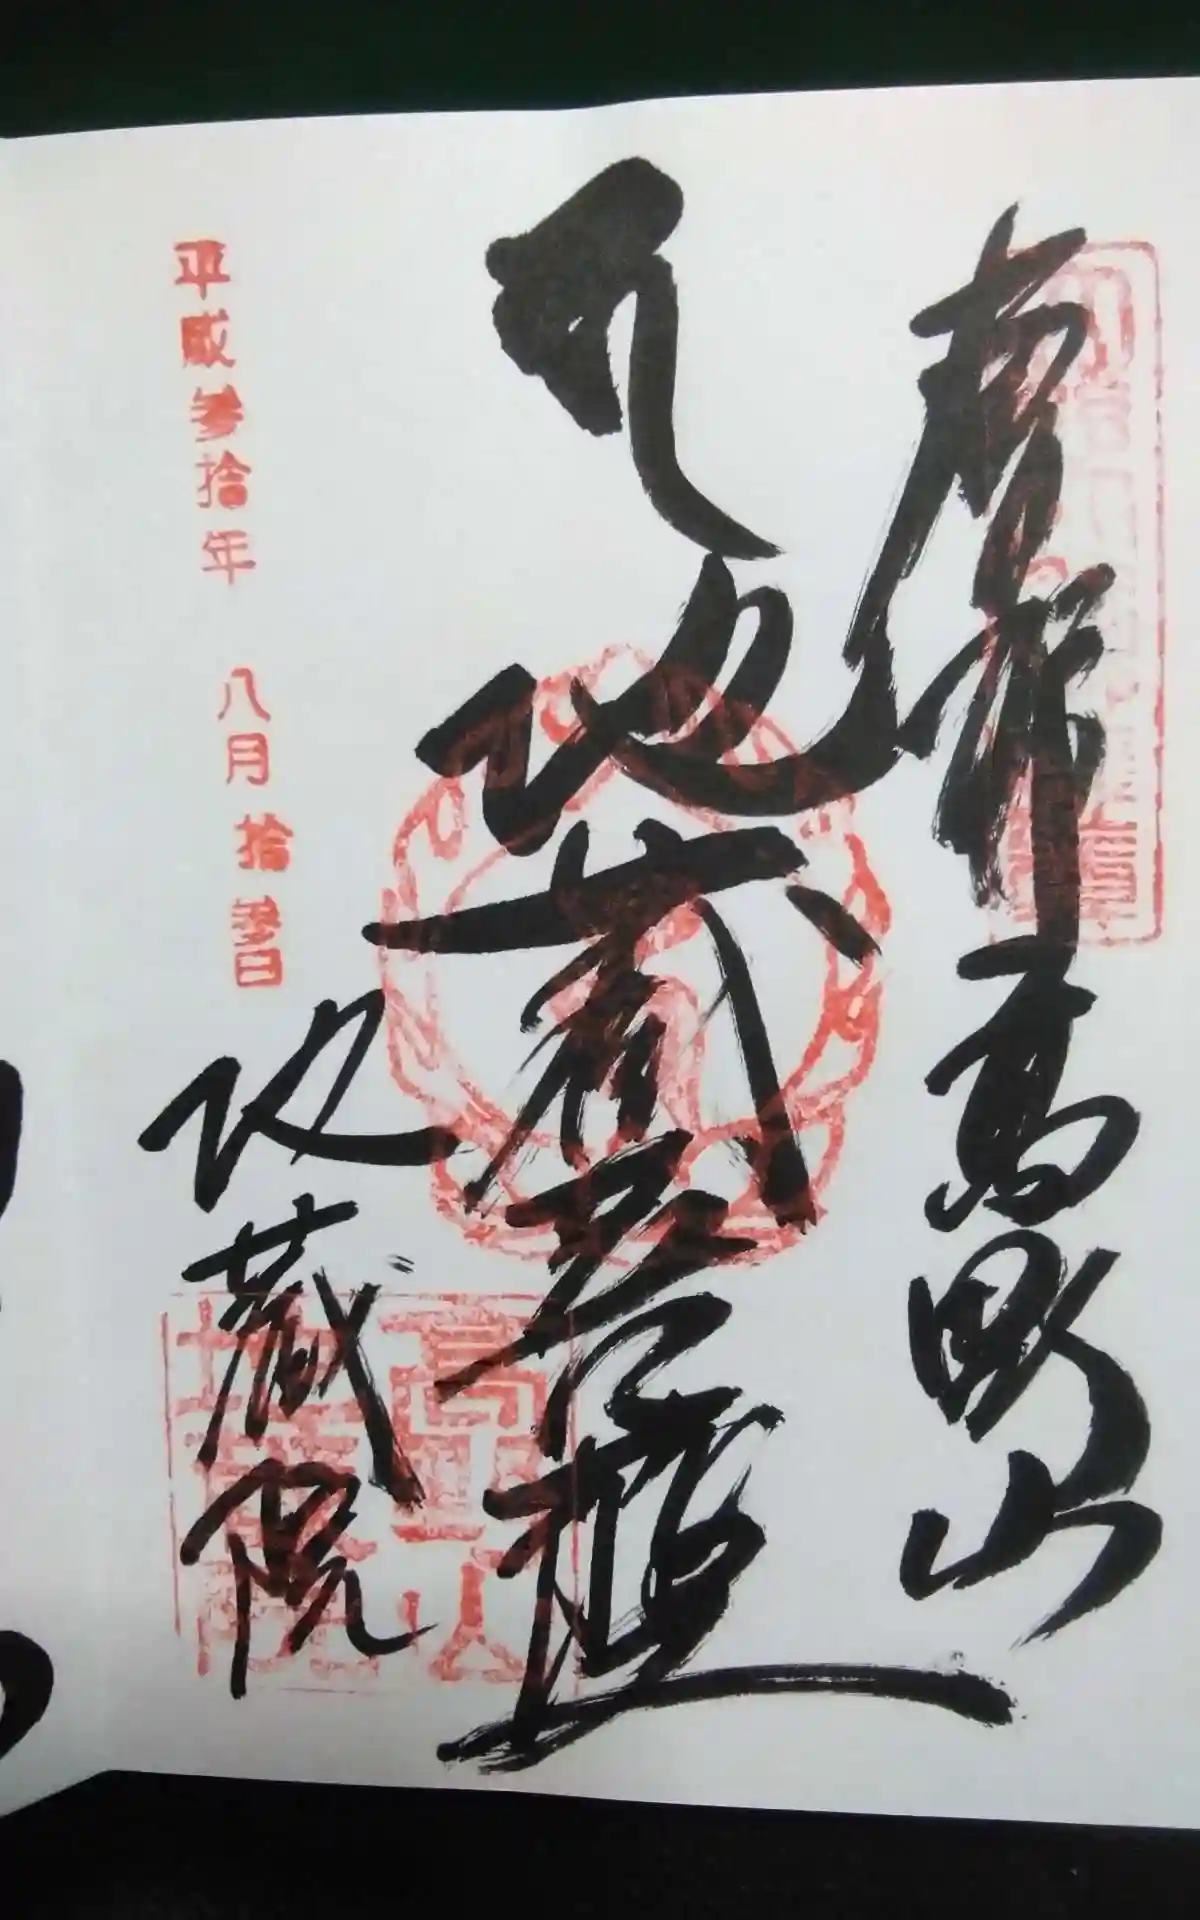 奉拝 高野山
地蔵菩薩
平成参拾年 八月拾参日
地蔵院